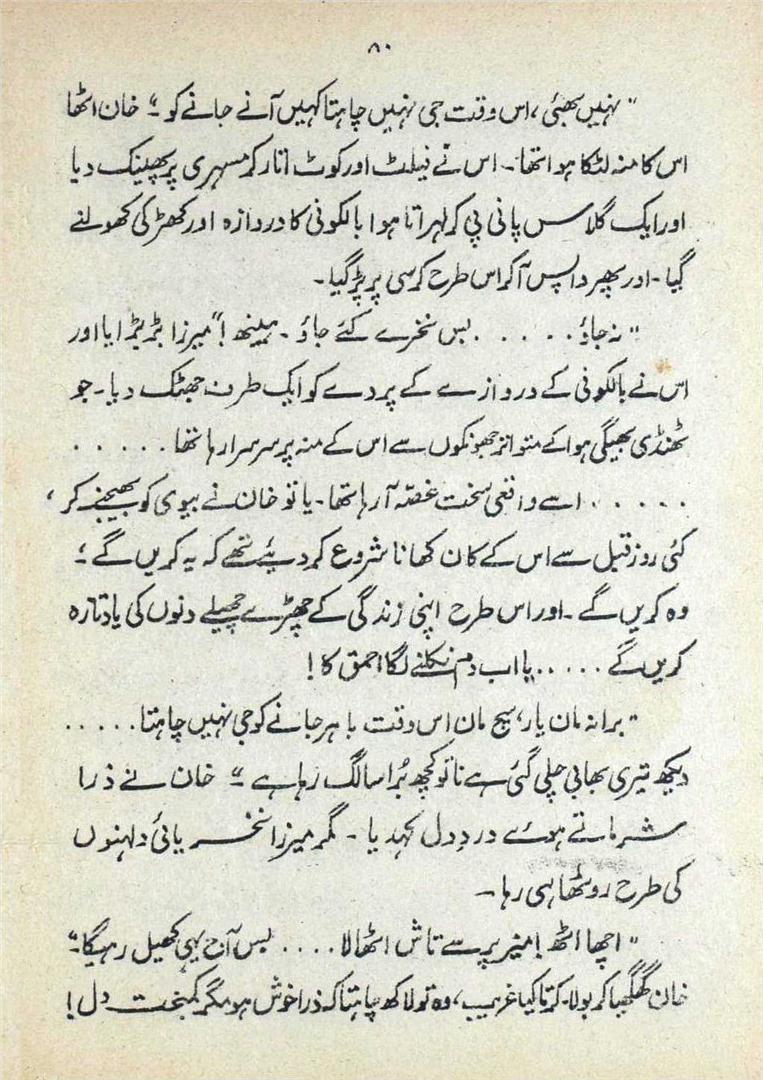 ۸۰
"نہیں بھئی، اس وقت جی نہیں چاہتا کہیں آنے جانے کو۔" خان اٹھا
اس کا منہ لٹکا ہوا تھا۔ اس نے فیلٹ اور کوٹ اتار کر مسہری پر پھینک دیا
اور ایک گلاس پانی پی کر لہراتا ہوا بالکونی کا دروازہ اور کھڑکی کھولنے
گیا۔ اور پھر واپس آ کر اس طرح کرسی پر پڑ گیا۔
"نہ جاؤ ..... بس نخرے کئے جاؤ۔ ہینھ!" میرزا بڑبڑایا اور
اس نے بالکونی کے دروازے کے پردے کو ایک طرف جھٹک دیا۔ جو
ٹھنڈی بھیگی ہوا کے متواتر جھونکوں سے اس کے منہ پر سرسرا رہا تھا .....
..... اسے واقعی سخت غصّہ آ رہا تھا۔ یا تو خان نے بیوی کو بھیجنے کر،
کئی روز قبل سے اس کے کان کھانا شروع کر دیئے تھے کہ یہ کریں گے؛
وہ کریں گے۔ اور اس طرح اپنی زندگی کے چھڑے چھیلے دنوں کی یاد تازہ
کریں گے ..... یا اب دم نکلنے لگا احمق کا!
"برا نہ مان یار، سچ مان اس وقت باہر جانے کو جی نہیں چاہتا .....
دیکھ تیری بھابی چلی گئی ہے نا تو کچھ بُرا سا لگ رہا ہے۔" خان نے ذرا
شرماتے ہوئے دردِ دل کہدیا۔ مگر میرزا نخریائی دلہنوں
کی طرح روٹھا ہی رہا۔
"اچھا اٹھ! میز پر سے تاش اٹھا لا .... بس آج یہی کھیل رہیگا۔"
خان گھگھیا کر بولا۔ کرتا کیا غریب، وہ تو لاکھ چاہتا کہ ذرا خوش ہو مگر کمبخت دل!